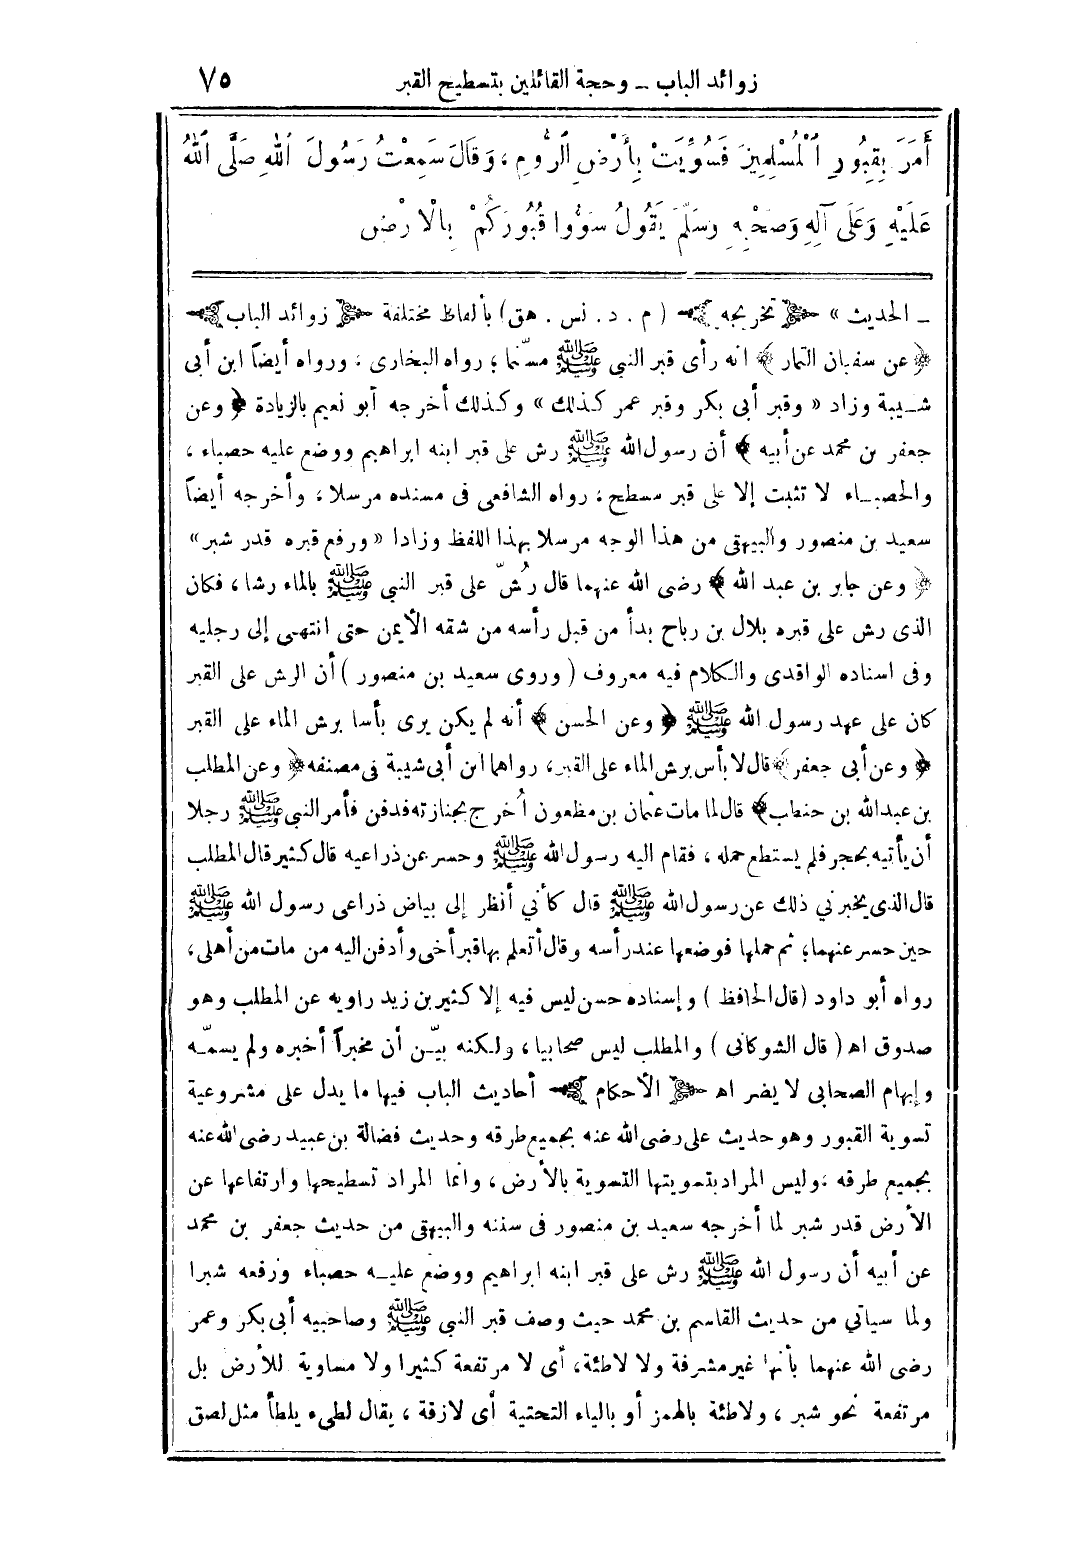 زوائد الباب – وحجة القائلين بتسطيح القبر ٧٥
أَمَرَ بِقُبُورِ ٱلْمُسْلِمِينَ فَسُوِّيَتْ بِأَرْضِ ٱلرُّومِ ، وَقَالَ سَمِعْتُ رَسُولَ ٱللهِ صَلَّى ٱللهُ
عَلَيْهِ وَعَلَى آلِهِ وَصَحْبِهِ وَسَلَّمَ يَقُولُ سَوُّوا قُبُورَكُمْ بِالْأَرْضِ
ـ الحديث » ﴿ تخريجه ﴾ ( م . د . نس . هق ) بألفاظ مختلفة ﴿ زوائد الباب ﴾
﴿ عن سفيان التمار ﴾ انه رأى قبر النبي ﷺ مسنّما ؛ رواه البخارى ، ورواه أيضاً ابن أبى
شيبة وزاد « وقبر أبى بكر وقبر عمر كذلك » وكذلك أخرجه أبو نعيم بالزيادة ﴿ وعن
جعفر بن محمد عن أبيه ﴾ أن رسول الله ﷺ رش على قبر ابنه ابراهيم ووضع عليه حصباء ،
والحصباء لا تثبت إلا على قبر مسطح ، رواه الشافعى فى مسنده مرسلا ، وأخرجه أيضاً
سعيد بن منصور والبيهقى من هذا الوجه مرسلا بهذا اللفظ وزادا « ورفع قبره قدر شبر »
﴿ وعن جابر بن عبد الله ﴾ رضى الله عنهما قال رُشّ على قبر النبي ﷺ بالماء رشا ، فكان
الذى رش على قبره بلال بن رباح بدأ من قبل رأسه من شقه الأيمن حتى انتهى إلى رجليه
وفى اسناده الواقدى والكلام فيه معروف ( وروى سعيد بن منصور ) أن الرش على القبر
كان على عهد رسول الله ﷺ ﴿ وعن الحسن ﴾ أنه لم يكن يرى بأسا برش الماء على القبر
﴿ وعن أبى جعفر ﴾ قال لا بأس برش الماء على القبر، رواهما ابن أبى شيبة فى مصنفه ﴿ وعن المطلب
بن عبدالله بن حنطب ﴾ قال لما مات عثمان بن مظعون أُخرج بجنازته فدفن فأمر النبي ﷺ رجلا
أن يأتيه بحجر فلم يستطع حمله ، فقام اليه رسول الله ﷺ وحسر عن ذراعيه قال كثير قال المطلب
قال الذى يخبرني ذلك عن رسول الله ﷺ قال كأني أنظر إلى بياض ذراعى رسول الله ﷺ
حين حسر عنهما؛ ثم حملها فوضعها عند رأسه وقال أتعلم بها قبر أخى وأدفن اليه من مات من أهلى ،
رواه أبو داود ( قال الحافظ ) وإسناده حسن ليس فيه إلا كثير بن زيد راويه عن المطلب وهو
صدوق اه ( قال الشوكانى ) والمطلب ليس صحابيا ، ولكنه بيّن أن مخبراً أخبره ولم يسمّه
وإبهام الصحابى لا يضر اه ﴿ الأحكام ﴾ أحاديث الباب فيها ما يدل على مشروعية
تسوية القبور وهو حديث على رضى الله عنه بجميع طرقه وحديث فضالة بن عبيد رضى الله عنه
بجميع طرقه ، وليس المراد بتسويتها التسوية بالأرض ، وانما المراد تسطيحها وارتفاعها عن
الأرض قدر شبر لما أخرجه سعيد بن منصور فى سننه والبيهقى من حديث جعفر بن محمد
عن أبيه أن رسول الله ﷺ رش على قبر ابنه ابراهيم ووضع عليه حصباء ورفعه شبرا
ولما سيأتي من حديث القاسم بن محمد حيث وصف قبر النبي ﷺ وصاحبيه أبى بكر وعمر
رضى الله عنهما بأنها غير مشرفة ولا لاطئة، أى لا مرتفعة كثيرا ولا مساوية للأرض بل
مرتفعة نحو شبر ، ولاطئة بالهمز أو بالياء التحتية أى لازقة ، يقال لطىء يلطأ مثل لصق